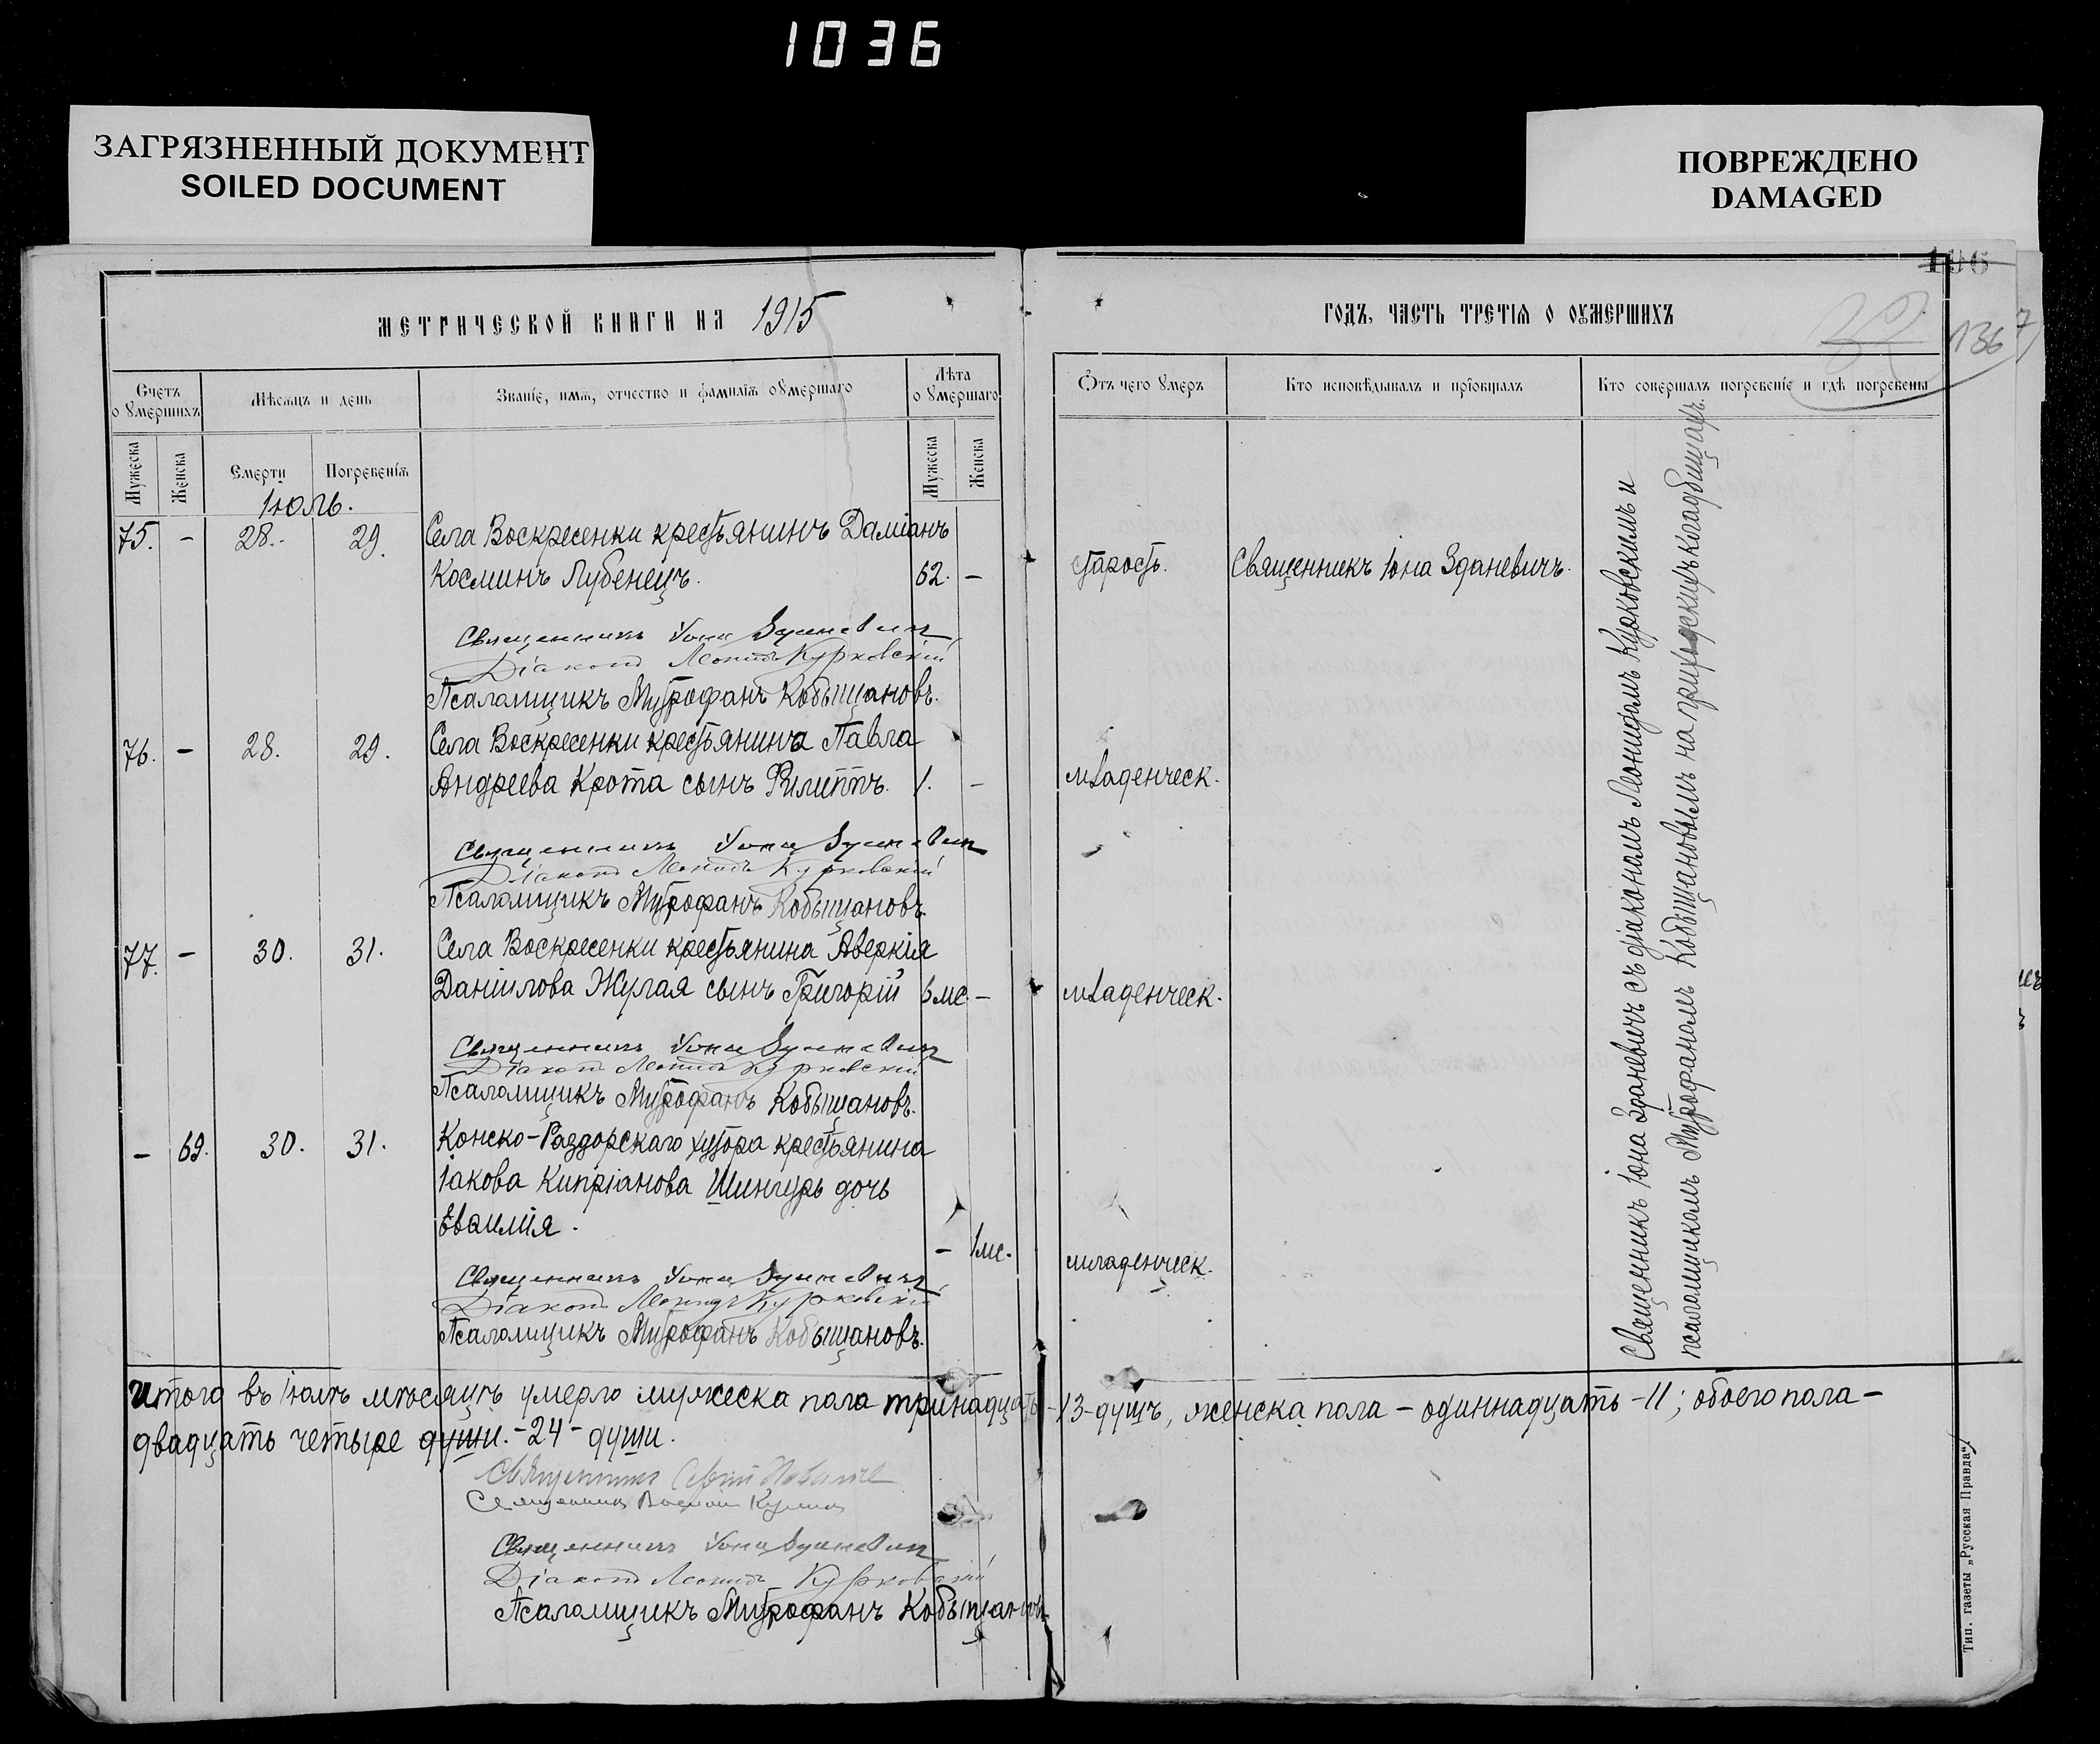 1036
ЗАГРЯЗНЕННЫЙ ДОКУМЕНТ
SOILED DOCUMENT
ПОВРЕЖДЕНО
DAMAGED
196
1367
МЕТРИЧЕСКОЙ КНИГИ НА 1915
ГОДЪ, ЧАСТЬ ТРЕТІЯ О ОУМЕРШИХЪ
Счетъ о умершихъ
Мѣсяцъ и день
Званіе, имя, отчество и фамилія оумершаго
Лѣта о умершаго
Отъ чего умеръ
Кто исповѣдывалъ и пріобщалъ
Кто совершалъ погребеніе и гдѣ погребены
Мужеска
Женска
Смерти
Погребенія
Мужеска
Женска
Іюль.
75. - 28. 29. Села Воскресенки крестьянинъ Даміанъ
Косминъ Лубенецъ. 62. - старость. Священникъ Іона Зданевичъ.
Священникъ Іона Зданевичъ
Діаконъ Леонидъ Курковскій
Псаломщикъ Митрофанъ Кобыщановъ.
76. - 28. 29. Села Воскресенки крестьянина Павла
Андреева Крота сынъ Филиппъ. 1. - младенческ.
Священникъ Іона Зданевичъ
Діаконъ Леонидъ Курковскій
Псаломщикъ Митрофанъ Кобыщановъ.
77. - 30. 31. Села Воскресенки крестьянина Аверкія
Даніилова Жулая сынъ Григорій 6 мс. - младенческ.
Священникъ Іона Зданевичъ
Діаконъ Леонидъ Курковскій
Псаломщикъ Митрофанъ Кобыщановъ.
- 69. 30. 31. Конско-Раздорскаго хутора крестьянина
Іакова Кипріанова Шингурь дочь
Еваилія.
- 1 мс. младенческ.
Священникъ Іона Зданевичъ
Діаконъ Леонидъ Курковскій
Псаломщикъ Митрофанъ Кобыщановъ.
Священникъ Іона Зданевичъ съ діакономъ Леонидомъ Курковскимъ и
псаломщикомъ Митрофаномъ Кобыщановымъ на приходскихъ кладбищахъ.
Итого въ Іюлѣ мѣсяцѣ умерло мужеска пола тринадцать-13-душъ, женска пола - одиннадцать -11; обоего пола -
двадцать четыре души. -24- души.
Священникъ
Священникъ
Священникъ Іона Зданевичъ
Діаконъ Леонидъ Курковскій
Псаломщикъ Митрофанъ Кобыщановъ
Тип. газеты „Русская Правда“.